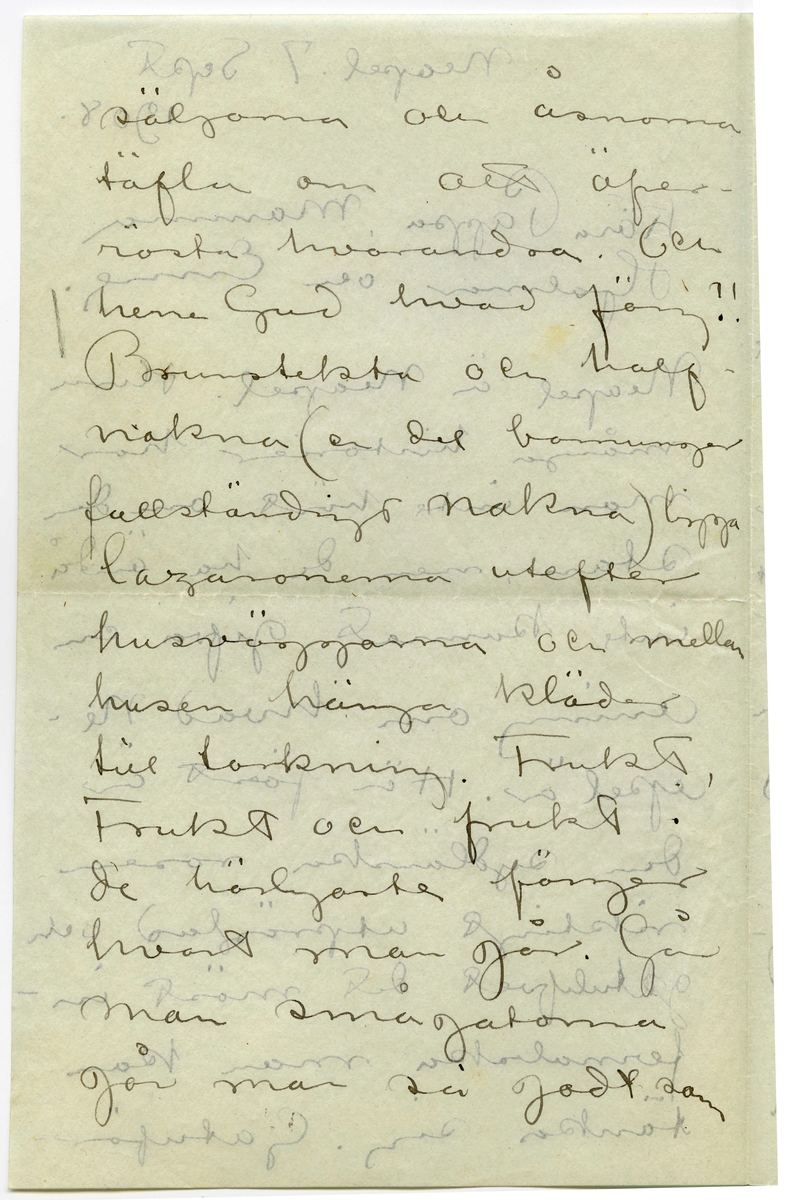 säljarna och åsnorna
täfla om att öfver-
rösta hvarandra. Och
herre Gud hvad färg!!
Brunstekta och half-
nakna (en del barnungar
fullständigt nakna) ligga
lazaronerna utefter
husväggarna och mellan
husen hänga kläder
till torkning. Frukt,
Frukt och frukt.
de härligaste färger
hvart man går. Går
man smågatorna
går man så godt som